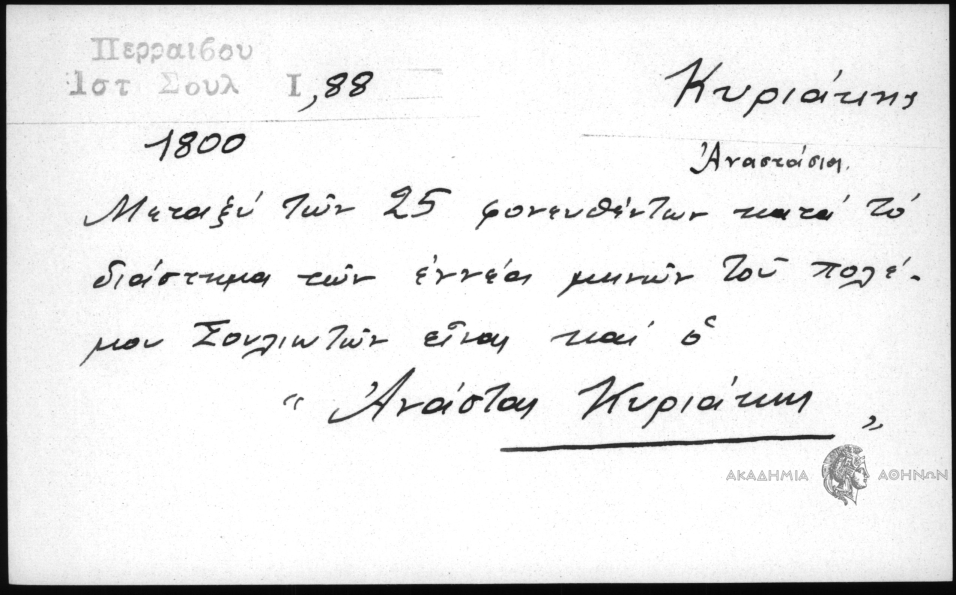 Περραιβου
Ιστ Σουλ Ι, 88
Κυριάκης
1800
Ἀναστάσιος
Μεταξύ τῶν 25 φονευθέντων κατά τό
διάστημα τῶν ἐννέα μηνῶν τοῦ πολέ-
μου Σουλιωτῶν εἶναι καί ὁ
“ Ἀνάστας Κυριάκης „
ΑΚΑΔΗΜΙΑ ΑΘΗΝΩΝ